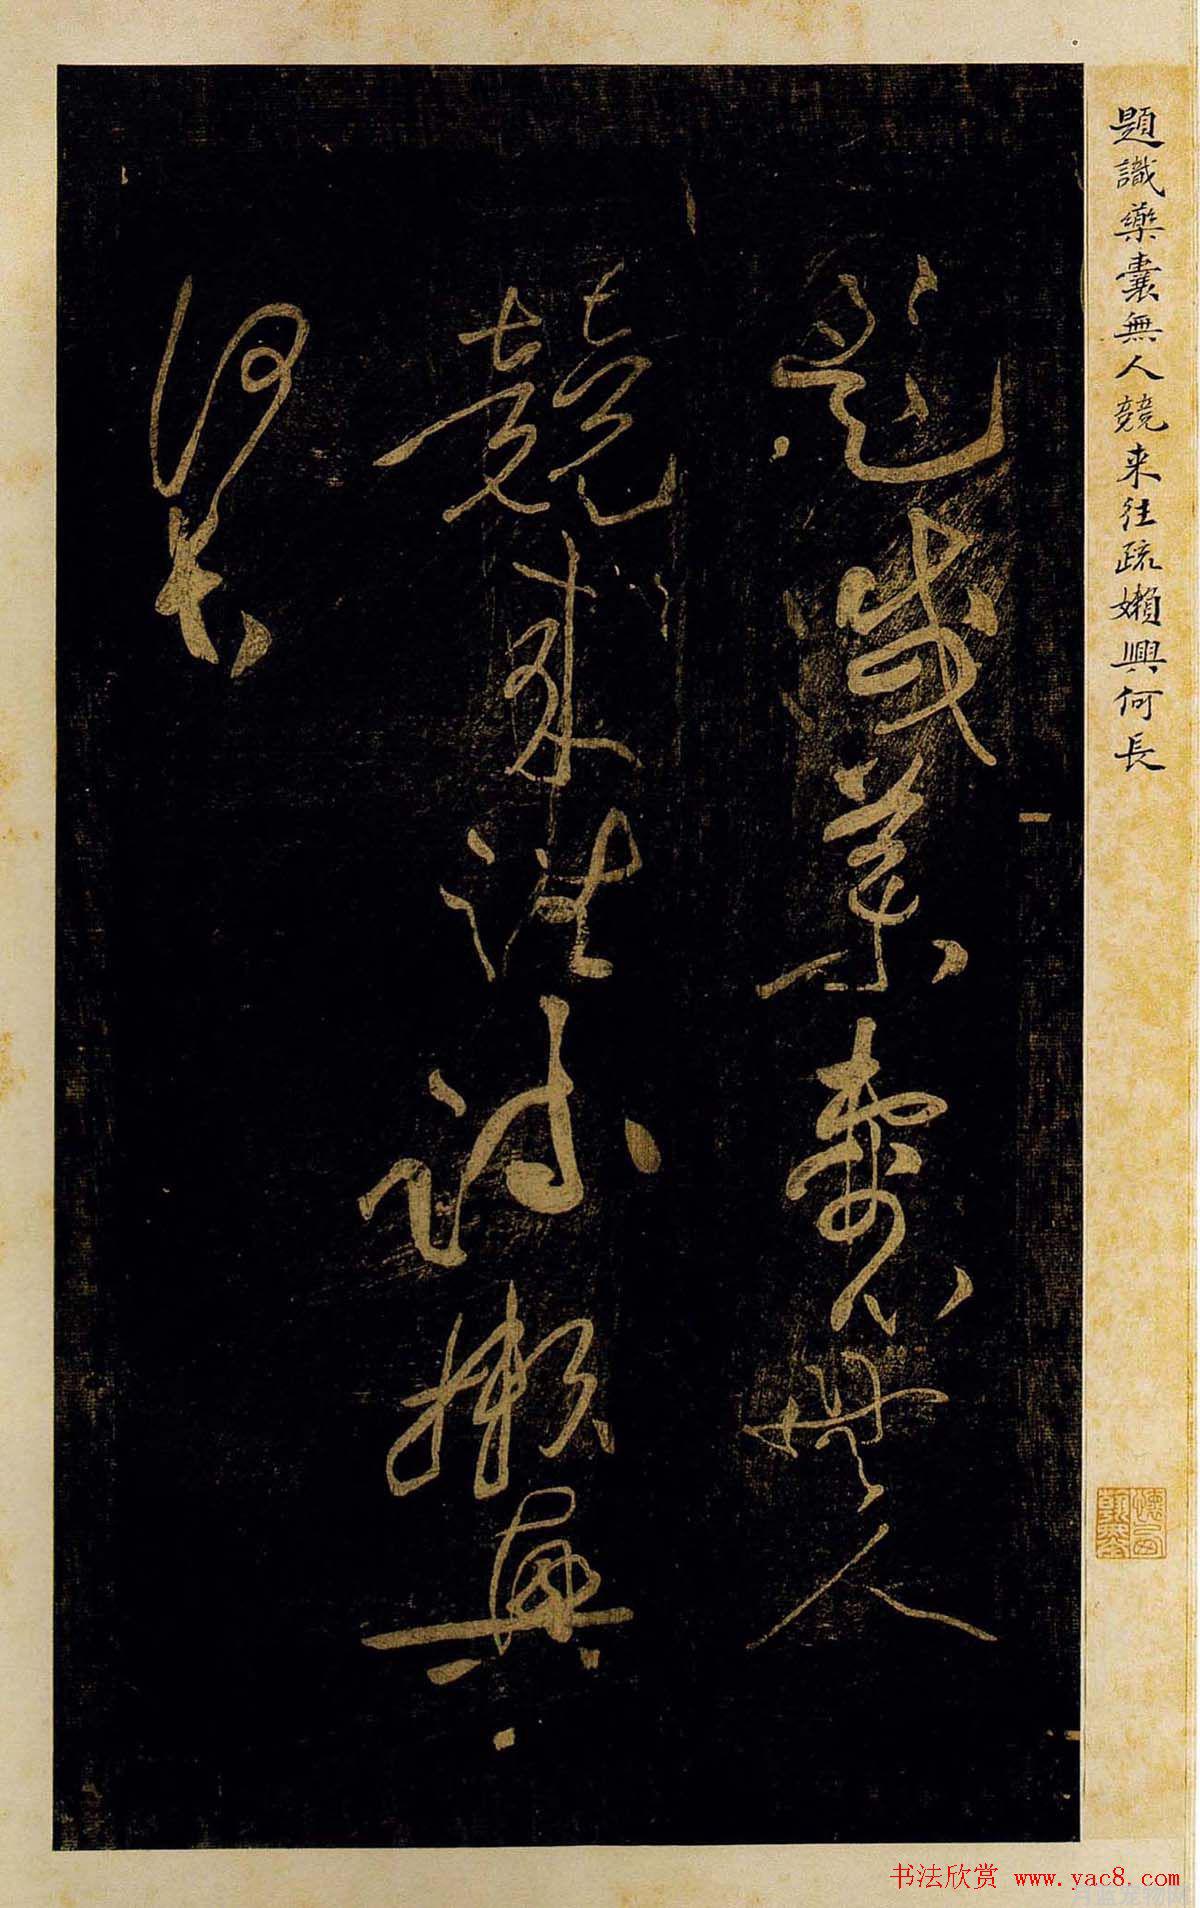 題識藥囊無人競来往疏嬾興何長
題識藥囊無人
競來往疏嬾興
何長
书法欣赏 www.yac8.com